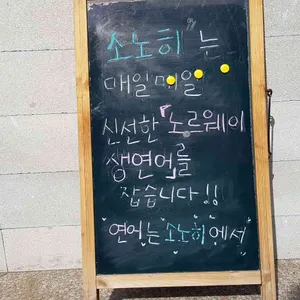 소노히 는
매일매일
신선한「노르웨이
생연어」를
잡습니다!!
연어는 소노히에서